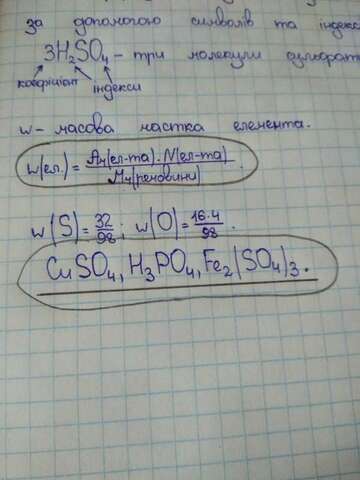 за допомогою символів та індекс
3H₂SO₄ – три молекули сульфатн
коефіцієнт індекси
w – масова частка елемента.
w(ел.) = Ar(ел-та) · N(ел-та) / Mr(речовини) .
w(S) = 32/98 ; w(O) = 16·4/98 .
CuSO₄, H₃PO₄, Fe₂(SO₄)₃.